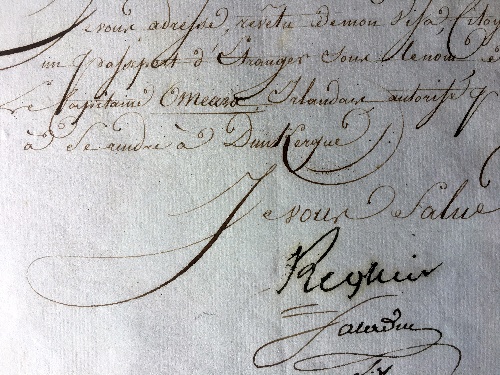 Je vous adresse, revêtu de mon Visa, Citoy
un Passeport d'Etranger sous le nom
Le Capitaine Omeara, Irlandais autorisé
à Se rendre à Dunkerque.
Je vous Salue